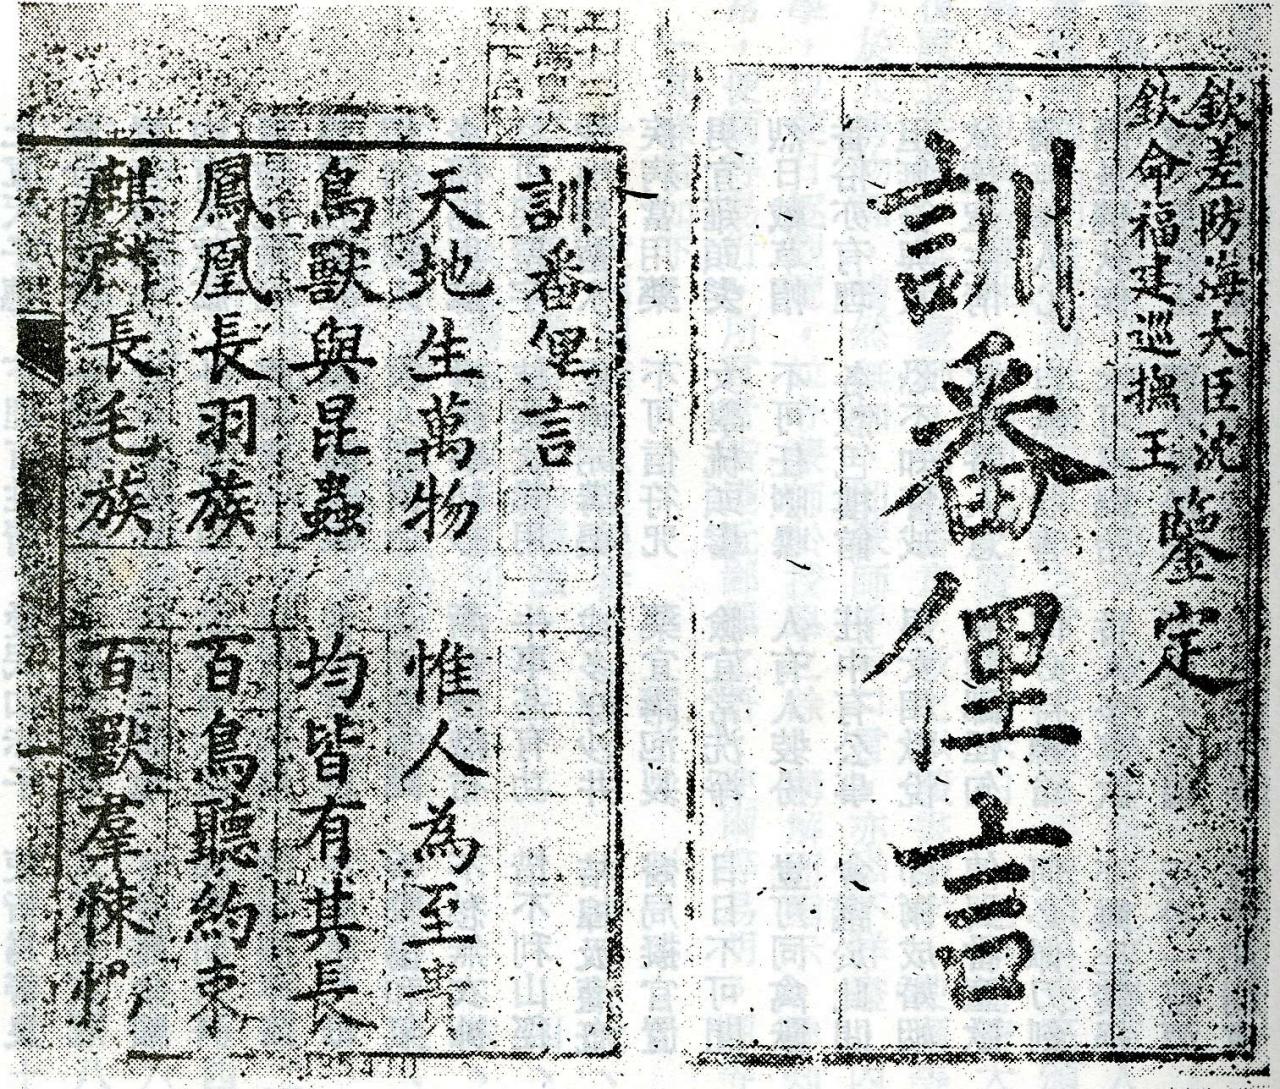 欽差防海大臣沈
欽命福建巡撫王
鑒定
訓番俚言
訓番俚言
天地生萬物　惟人為至貴
鳥獸與昆蟲　均皆有其長
鳳凰長羽族　百鳥聽約束
麒麟長毛族　百獸羣悚惕